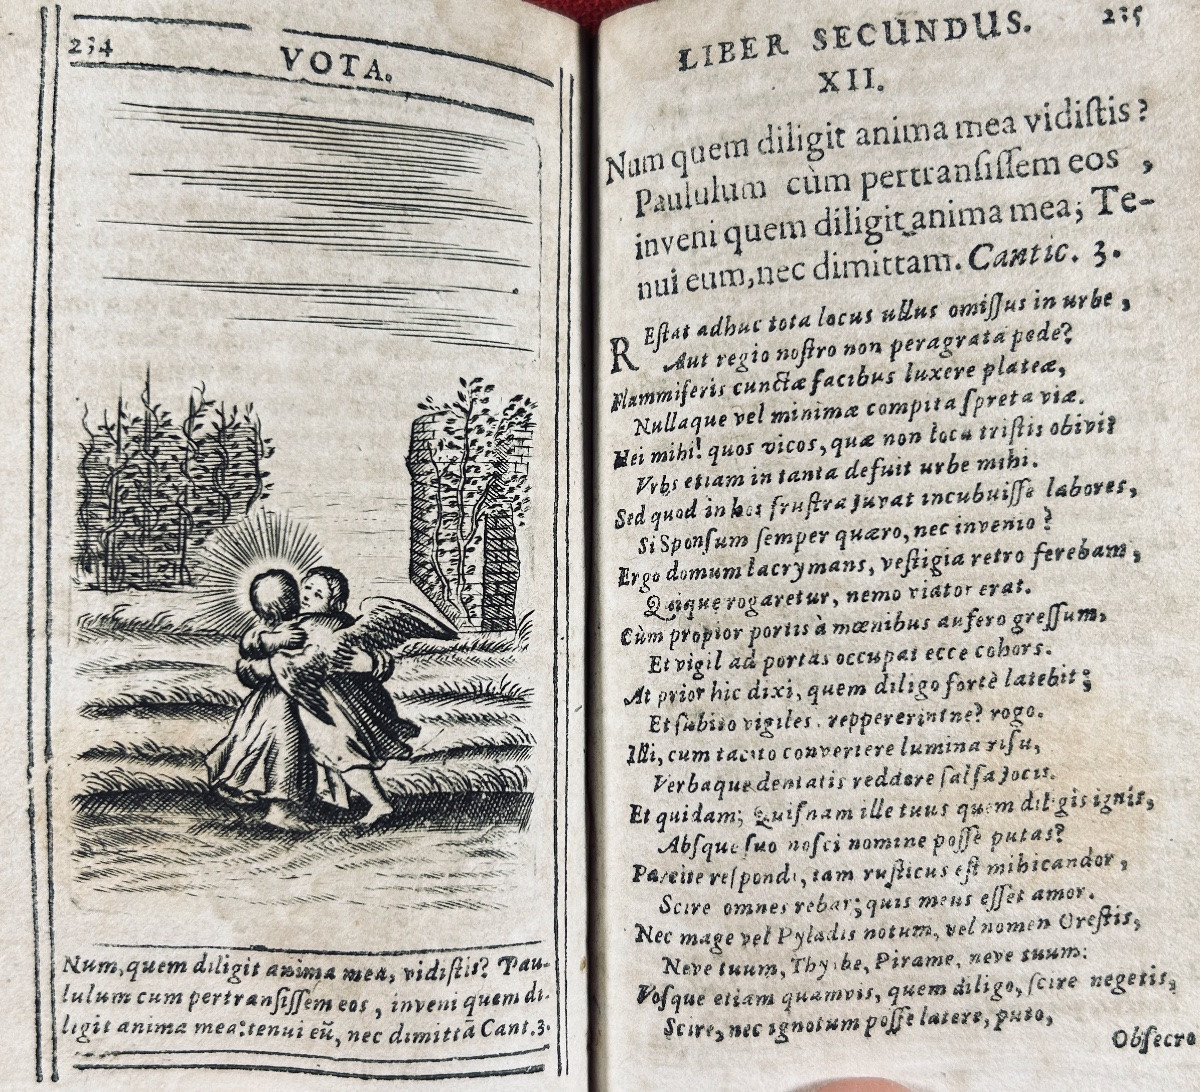 234
VOTA.
Num, quem diligit anima mea, vidiſtis? Pau-
lulum cum pertranſiſſem eos, inveni quem di-
ligit anima mea: tenui eū, nec dimittā Cant. 3.
LIBER SECUNDUS. 235
XII.
Num quem diligit anima mea vidiſtis?
Paululum cùm pertranſiſſem eos,
inveni quem diligit anima mea; Te-
nui eum, nec dimittam. Cantic. 3.
REſtat adhuc tota locus ullus omiſſus in urbe,
Aut regio noſtro non peragrata pede?
Flammiferis cunctæ facibus luxere plateæ,
Nullaque vel minimæ compita ſpreta viæ.
Hei mihi! quos vicos, quæ non loca triſtis obivi?
Vrbs etiam in tanta defuit urbe mihi.
Sed quod in hos fruſtra juvat incubuiſſe labores,
Si Sponſum ſemper quæro, nec invenio?
Ergo domum lacrymans, veſtigia retro ferebam,
Quique rogaretur, nemo viator erat.
Cùm propior portis à mœnibus aufero greſſum,
Et vigil ad portas occupat ecce cohors.
At prior hic dixi, quem diligo fortè latebit;
Et ſubito vigiles reppererintne? rogo.
Illi, cum tacito convertere lumina riſu,
Verbaque dentatis reddere ſalſa jocis.
Et quidam; Quiſnam ille tuus quem diligis ignis,
Abſque ſuo noſci nomine poſſe putas?
Parcite reſpondi, tam ruſticus eſt mihi candor,
Scire omnes rebar; quis meus eſſet amor.
Nec mage vel Pyladis notum, vel nomen Oreſtis,
Neve tuum, Thysbe, Pirame, neve tuum:
Voſque etiam quamvis, quem diligo, ſcire negetis,
Scire, nec ignotum poſſe latere, puto,
Obſecro